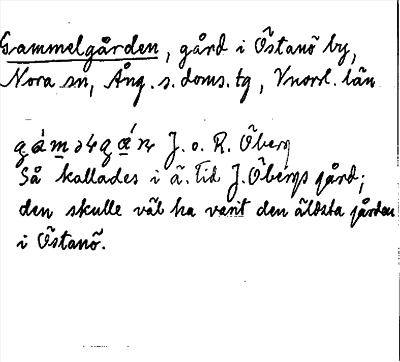 Gammelgården, gård i Östanö by,
Nora sn, Ång. s. doms. tg, Vnorrl. län
J. o. R. Öberg
Så kallades i ä. tid J. Öbergs gård;
den skulle väl ha varit den äldsta gården
i Östanö.